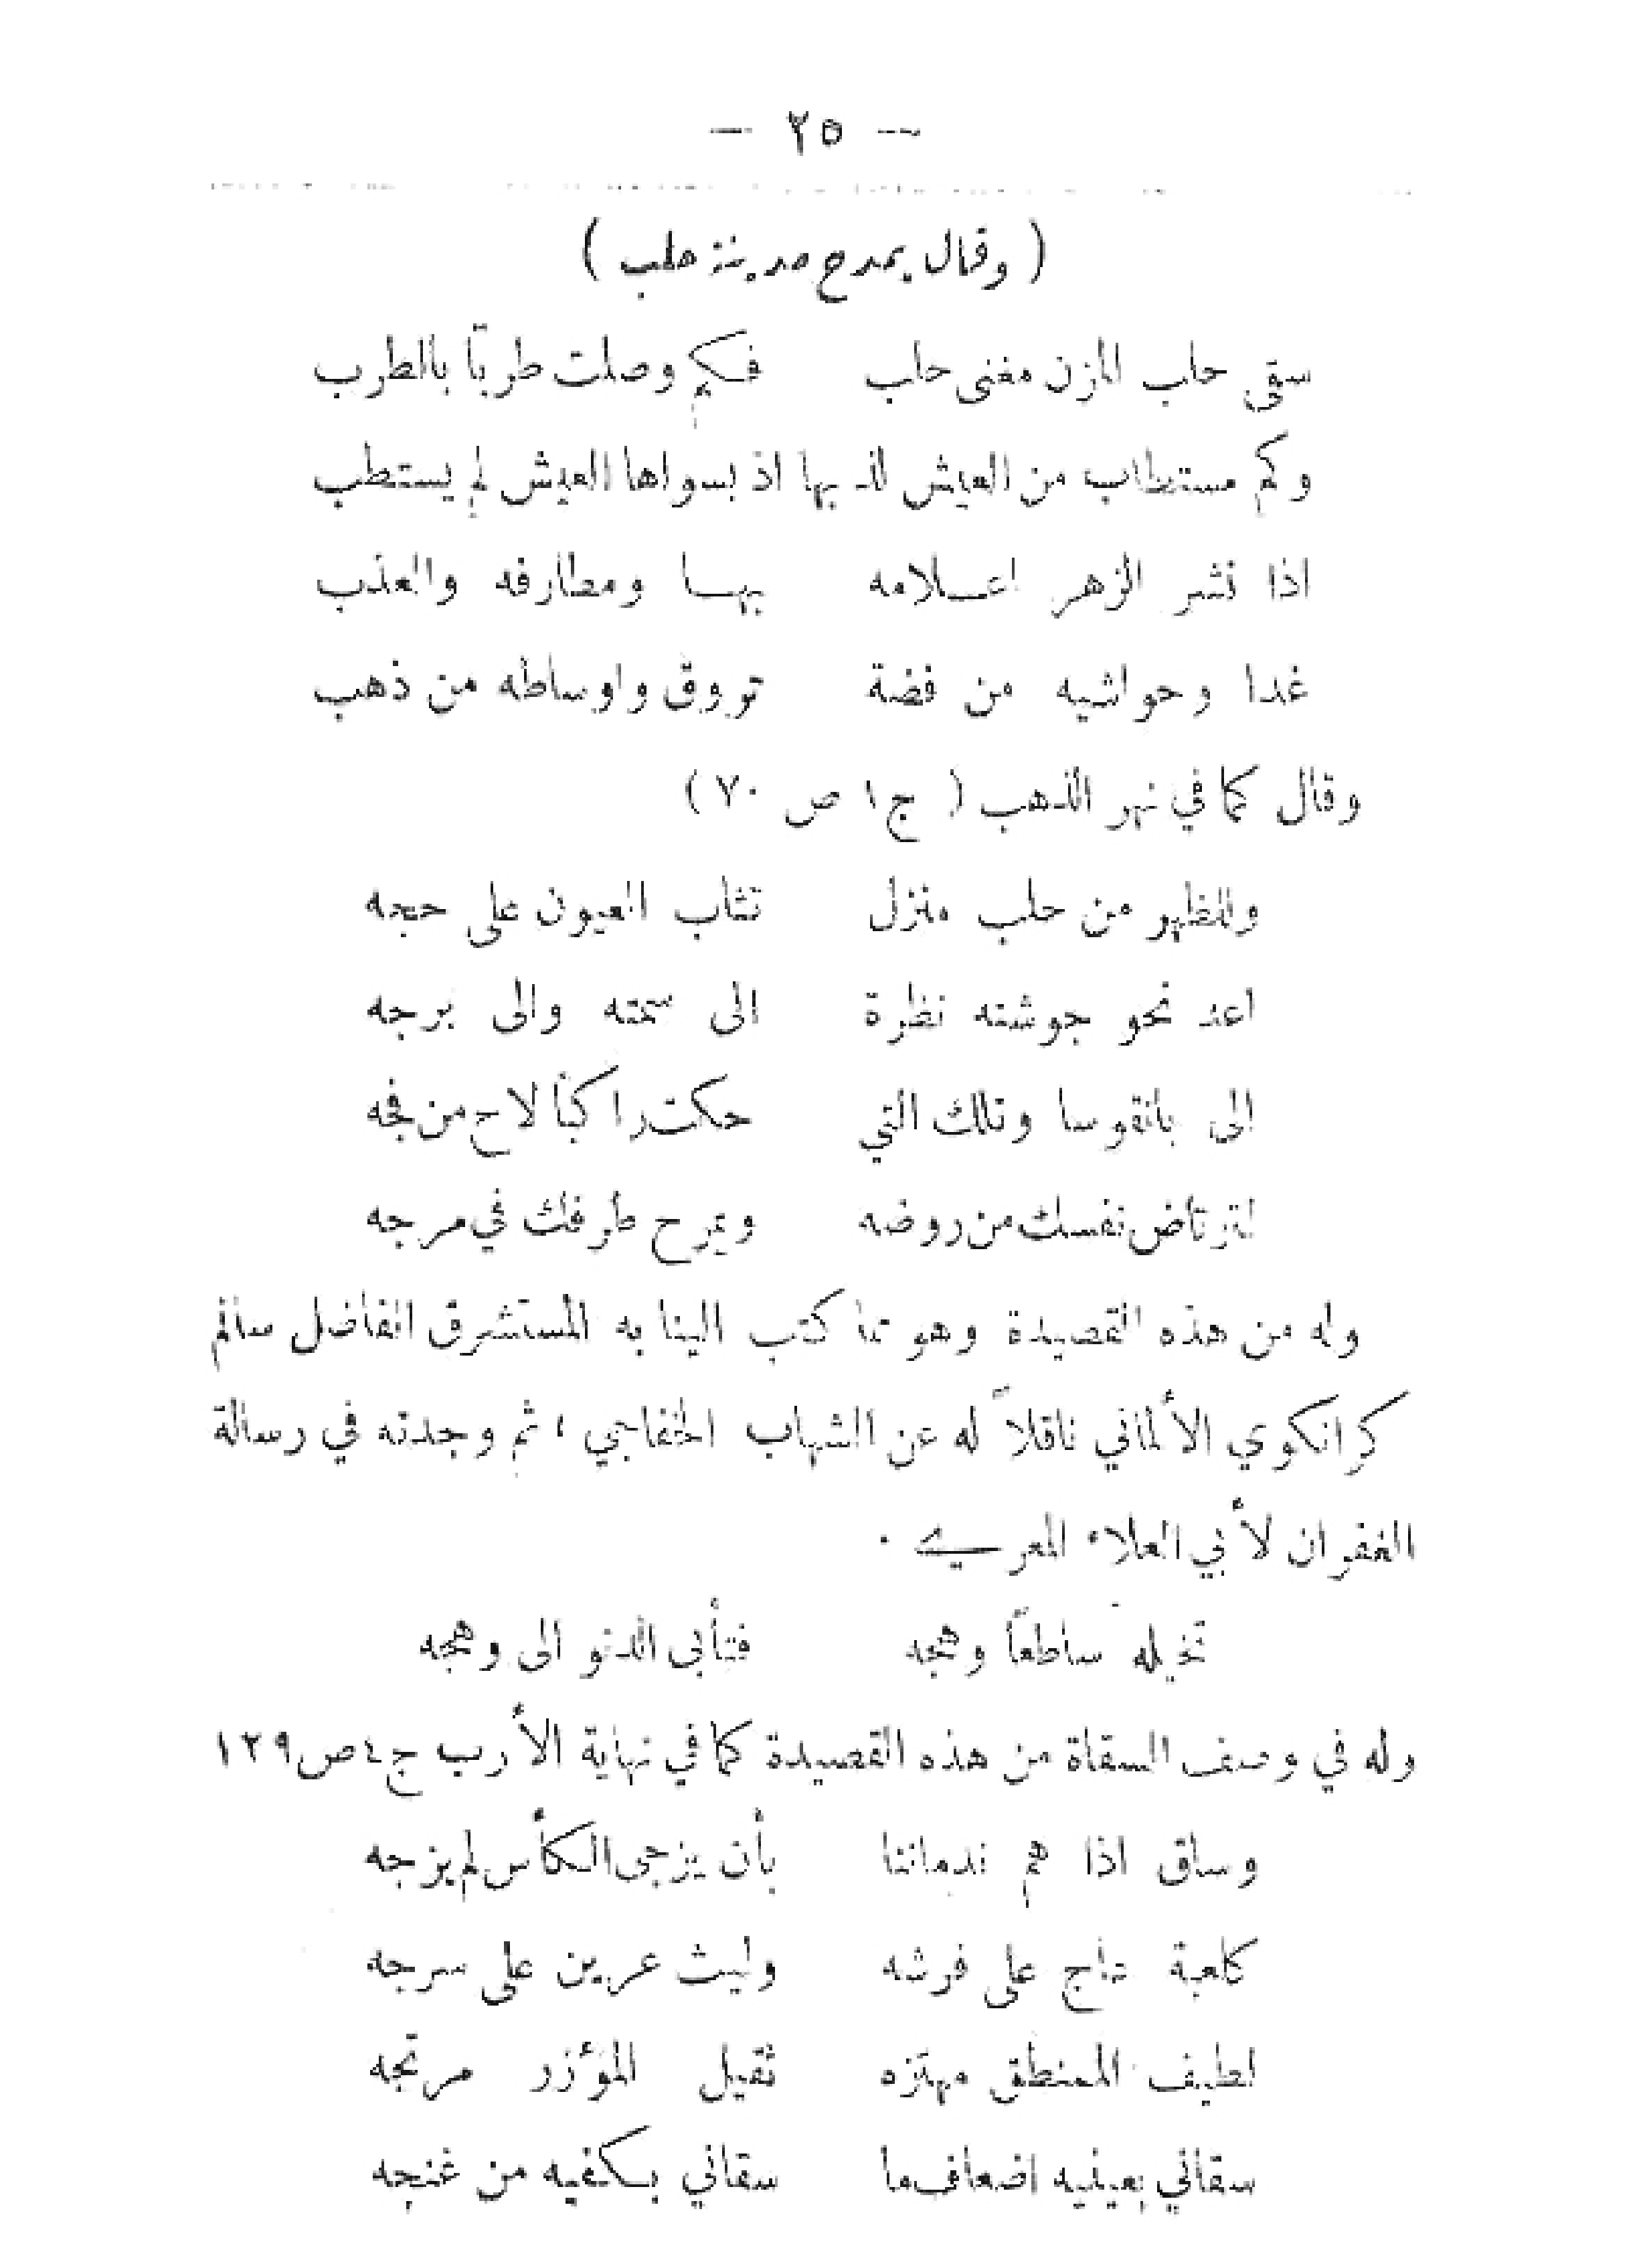 — ٢٥ —
( وقال يمدح مدينة حلب )
سقى حلب المزن مغنى حلب فكم وصلت طرباً بالطرب
وكم مستطاب من العيش لذ بها اذ بسواها العيش لم يستطب
اذا نشر الزهر اعلامه بها ومطارفه والعذب
غدا وحواشيه من فضة تروق واوساطه من ذهب
وقال كما في نهر الذهب ( ج ١ ص ٧٠ )
والمظهر من حلب منزل تثاب العيون على حجه
اعد نحو جوشنه نظرة الى سمته والى برجه
الى بانقوسا وتلك التي حكت راكباً لاح من فجه
لترتاض نفسك من روضه ويمرح طرفك في مرجه
وله من هذه القصيدة وهو مما كتب الينا به المستشرق الفاضل سالم
كرانكوي الألماني ناقلاً له عن الشهاب الخفاجي ، ثم وجدته في رسالة
الغفران لأبي العلاء المعري .
تخيله ساطعاً وهجه فتأبى الدنو الى وهجه
وله في وصف السقاة من هذه القصيدة كما في نهاية الأرب ج ٤ ص ١٢٩
وساق اذا هم ندماننا بأن يزجي الكأس لم يزجه
كلعبة عاج على فرشه وليث عرين على سرجه
لطيف الممنطق مهتزه ثقيل المؤزر مرتجه
سقاني بعينيه اضعاف ما سقاني بكفيه من غنجه